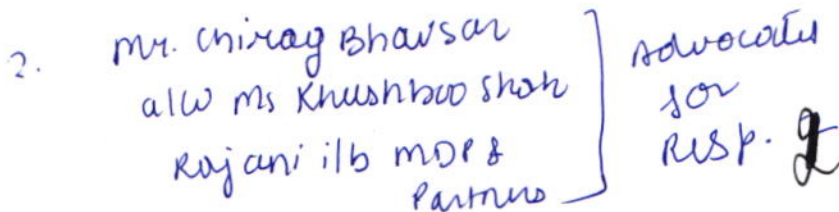 2. Mr. Chirag Bhavsar
a/w Ms Khushboo Shah
Rajani i/b MDP &
Partners
Advocates
for
Resp. 2